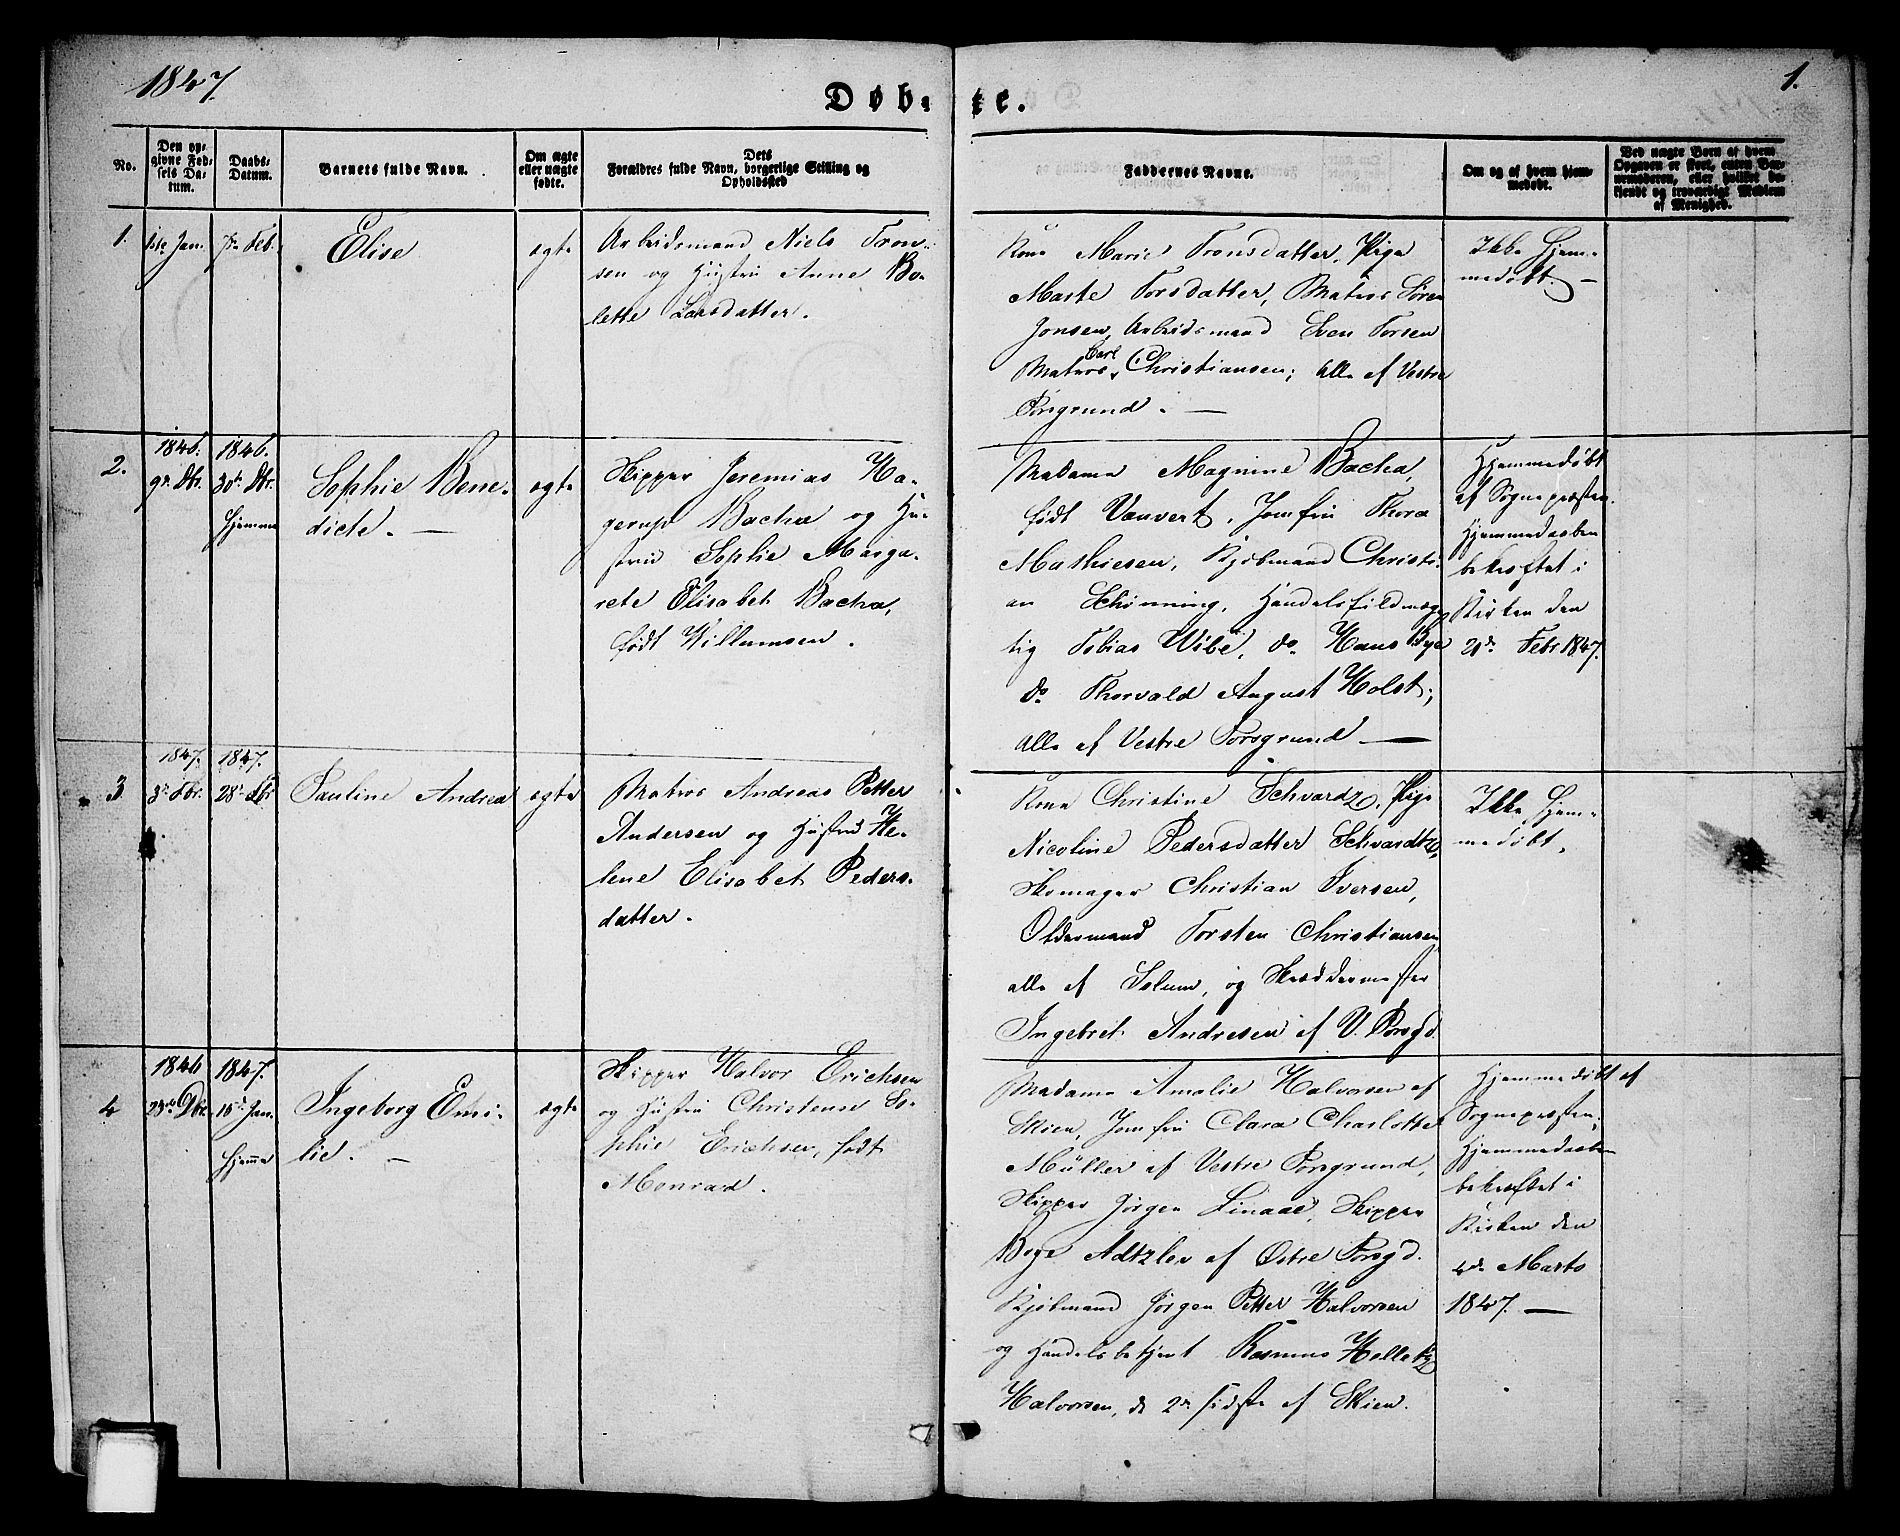 1847.
Døbte.
1.
No.
Den opgivne Fødsels Datum.
Daabs-Datum.
Barnets fulde Navn.
Om ægte eller uægte fødte.
Dets Forældres fulde Navn, borgerlige Stilling og Opholdssted
Faddernes Navne.
Om og af hvem hjemmedøbt.
Ved uægte Børn af hvem Opgaven er skeet, enten Barnemoderen, eller hvilket bekjendt og troværdigt Medlem af Menighed.
1.
1ste Jan.
7de Feb.
Elise
ægte
Arbeidsmand Niels Tron-
sen og Hustru Anne Bo-
lette Larsdatter.
Kone Marie Tronsdatter, Pige
Marte Torsdatter, Matros Søren
Jonsen, Arbeidsmand Sven Torsen
Matros Carl Christiansen; alle af Vestre
Porsgrund. —
Ikke Hjem-
medøbt. —
2.
1846.
9de Dbr.
1846.
30de Dbr.
Hjemme
Sophie Bene-
dicte. —
ægte
Skipper Jeremias Ha-
gerup Bache og Hu-
stru Sophie Marga-
rete Elisabet Bache,
født Willumsen.
Madame Magnine Bache,
født Vauvert, Jomfru Thora
Mathiesen, Kjøbmand Christi-
an Schønning, Handelsfuldmæg-
tig Tobias Wibe, do. Hans Bye
do Thorvald August Holst;
alle af Vestre Porsgrund —
Hjemmedøbt
af Sognepræsten.
Hjemmedaaben
bekræftet i
Kirken den
21de Febr 1847.
3
1847.
3de Fbr.
1847.
28de Fbr
Pauline Andrea
ægte
Matros Andreas Petter
Andersen og Hustru He-
lene Elisabet Peders-
datter.
Kone Christine Schvardtz, Pige
Nicoline Pedersdatter Schvardtz,
Skomager Christian Iversen,
Oldermand Torsten Christiansen
alle af Solum, og Skræddermester
Ingebret Andresen af V. Porsgd.
Ikke Hjem-
medøbt.
4
1846
23de Dbr.
1847.
15de Jan.
Hjemme
Ingeborg Emi-
lie. —
ægte
Skipper Halvor Erichsen
og Hustru Christense So-
phie Erichsen, født
Monrad.
Madame Amalie Halvorsen af
Skien, Jomfru Clara Charlotte
Müller af Vestre Porsgrund,
Skipper Jørgen Linaae, Skipper
Boye Adtzlev af Østre Porsgd.
Kjøbmand Jørgen Petter Halvorsen
og Handelsbetjent Rasmus Helletz
Halvorsen, de 2de sidste af Skien.
Hjemmedøbt af
Sognepræsten;
Hjemmedaaben
bekræftet i
Kirken den
4de Marts
1847. —